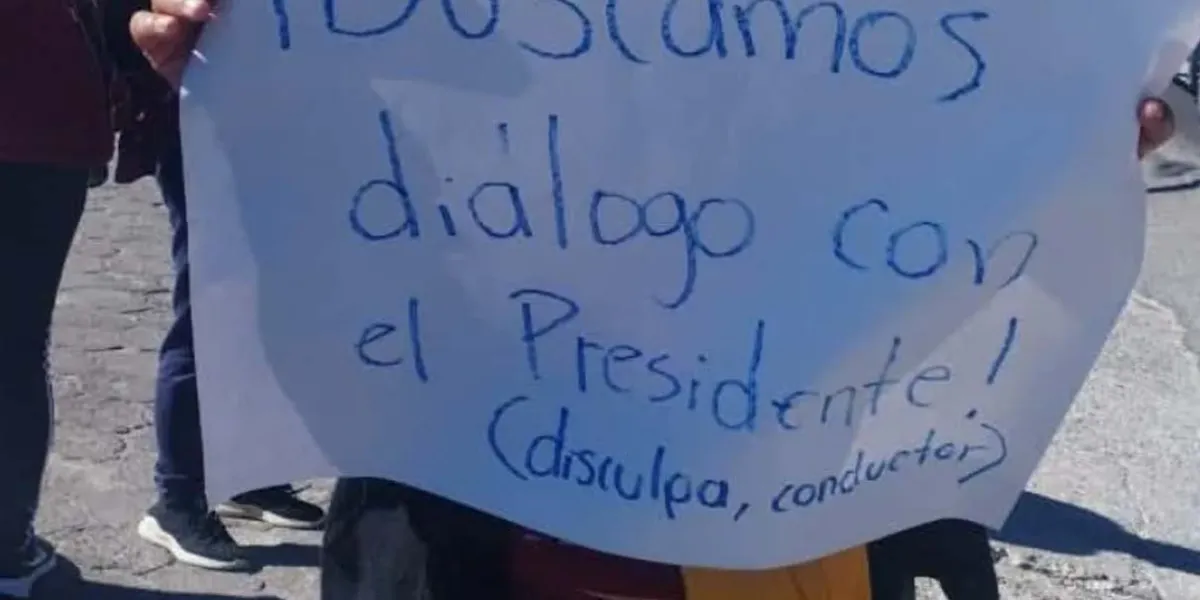 ¡Buscamos
diálogo con
el Presidente!
(disculpa, conductor)